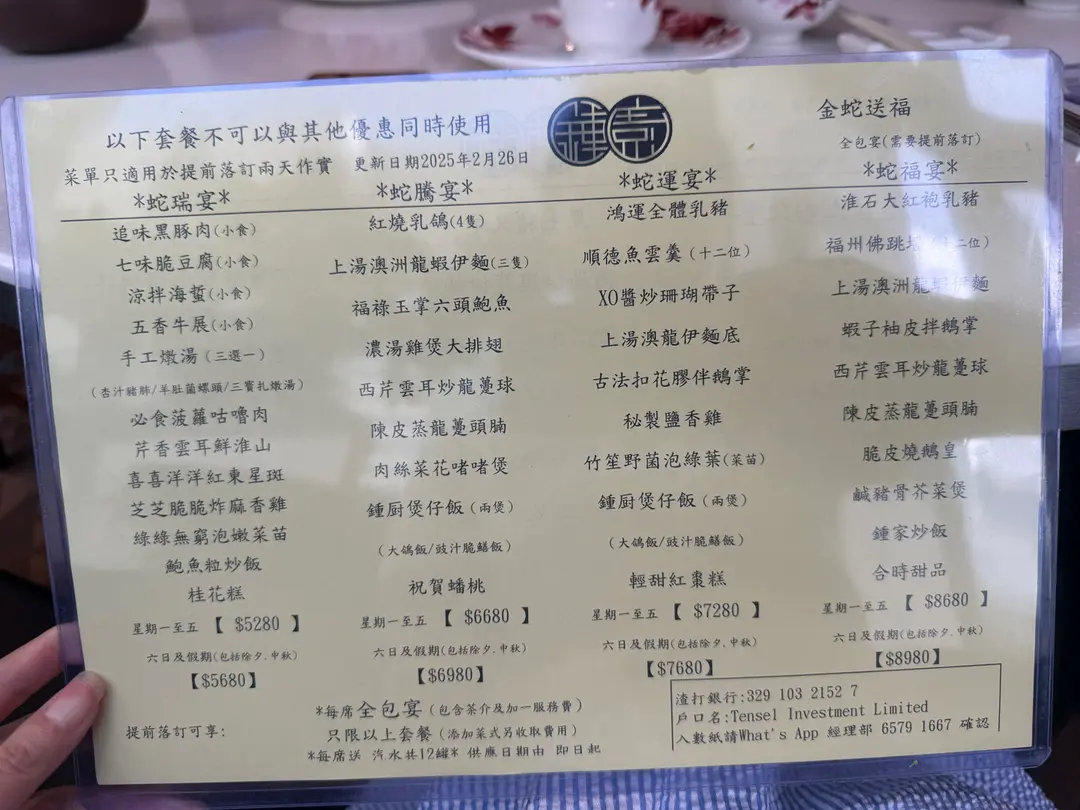 以下套餐不可以與其他優惠同時使用
菜單只適用於提前落訂兩天作實 更新日期2025年2月26日
鍾壹
金蛇送福
全包宴(需要提前落訂)
*蛇瑞宴*
追味黑豚肉(小食)
七味脆豆腐(小食)
涼拌海蜇(小食)
五香牛展(小食)
手工燉湯 (三選一)
(杏汁豬肺/羊肚菌螺頭/三寶扎燉湯)
必食菠蘿咕嚕肉
芹香雲耳鮮淮山
喜喜洋洋紅東星斑
芝芝脆脆炸麻香雞
綠綠無窮泡嫩菜苗
鮑魚粒炒飯
桂花糕
星期一至五 【 $5280 】
六日及假期(包括除夕、中秋)
【$5680】
*蛇騰宴*
紅燒乳鴿(4隻)
上湯澳洲龍蝦伊麵(三隻)
福祿玉掌六頭鮑魚
濃湯雞煲大排翅
西芹雲耳炒龍躉球
陳皮蒸龍躉頭腩
肉絲菜花啫啫煲
鍾厨煲仔飯 (兩煲)
(大鴿飯/豉汁脆鱔飯)
祝賀蟠桃
星期一至五 【 $6680 】
六日及假期(包括除夕、中秋)
【$6980】
*蛇運宴*
鴻運全體乳豬
順德魚雲羹 (十二位)
XO醬炒珊瑚帶子
上湯澳龍伊麵底
古法扣花膠伴鵝掌
秘製鹽香雞
竹笙野菌泡綠葉(菜苗)
鍾厨煲仔飯 (兩煲)
(大鴿飯/豉汁脆鱔飯)
輕甜紅棗糕
星期一至五 【 $7280 】
六日及假期(包括除夕、中秋)
【$7680】
*蛇福宴*
淮石大紅袍乳豬
福州佛跳 (十二位)
上湯澳洲龍蝦伊麵
蝦子柚皮拌鵝掌
西芹雲耳炒龍躉球
陳皮蒸龍躉頭腩
脆皮燒鵝皇
鹹豬骨芥菜煲
鍾家炒飯
合時甜品
星期一至五 【 $8680 】
六日及假期(包括除夕、中秋)
【$8980】
提前落訂可享:
*每席全包宴 (包含茶介及加一服務費)
只限以上套餐 (添加菜式另收取費用)
*每席送 汽水共12罐* 供應日期由 即日起
渣打銀行:329 103 2152 7
戶口名:Tensel Investment Limited
入數紙請What's App 經理部 6579 1667 確認